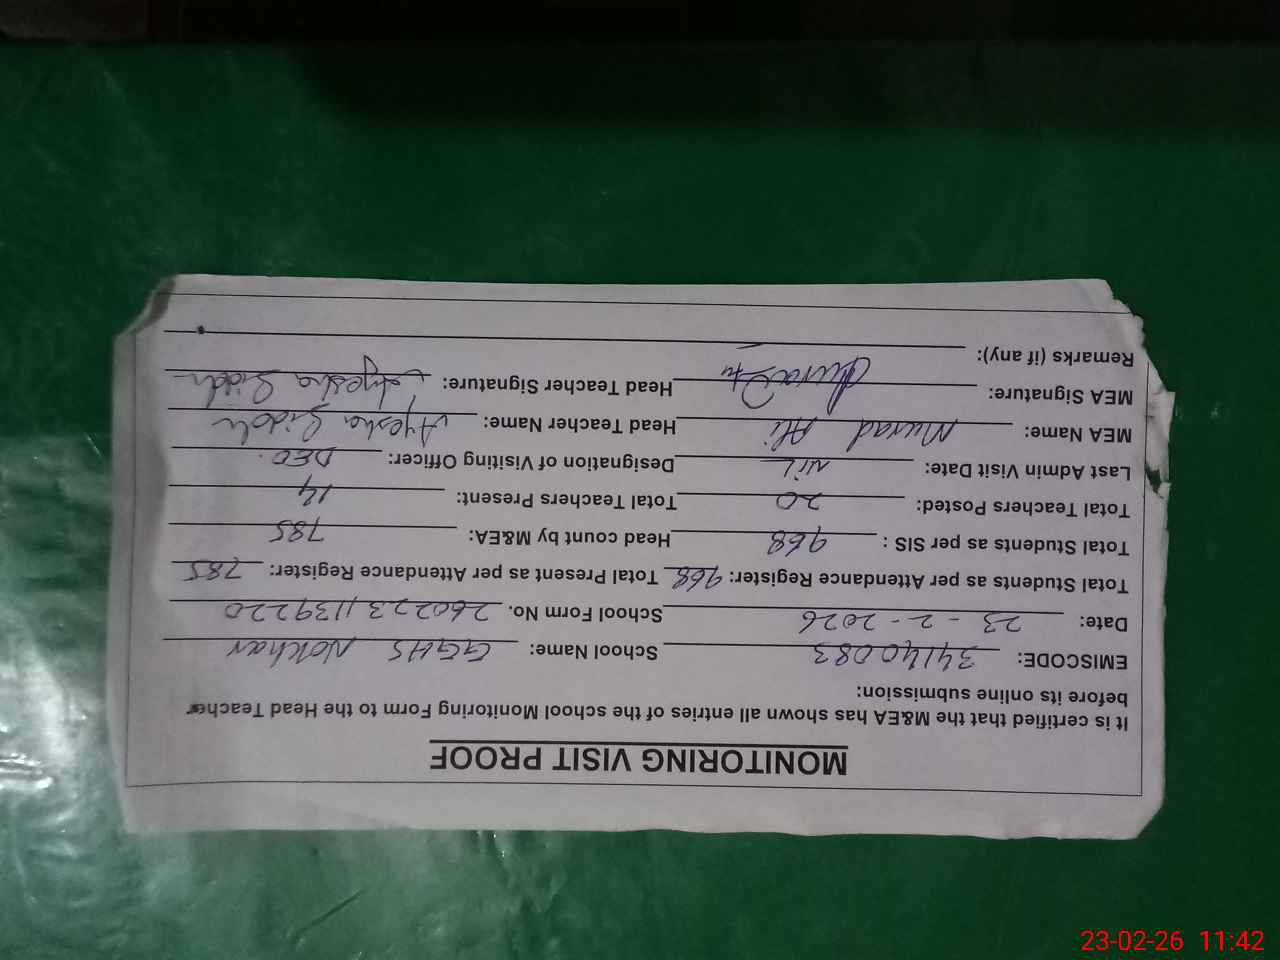 MONITORING VISIT PROOF
It is certified that the M&EA has shown all entries of the school Monitoring Form to the Head Teacher
before its online submission:
EMISCODE: 34140083 School Name: GGHS Nokhar
Date: 23-2-2026 School Form No. 2602231139220
Total Students as per Attendance Register: 968 Total Present as per Attendance Register: 785
Total Students as per SIS : 968 Head count by M&EA: 785
Total Teachers Posted: 20 Total Teachers Present: 14
Last Admin Visit Date: NIL Designation of Visiting Officer: DEO.
MEA Name: Murad Ali Head Teacher Name: Ayesha
MEA Signature: Head Teacher Signature: Ayesha
Remarks (if any):
23-02-26 11:42